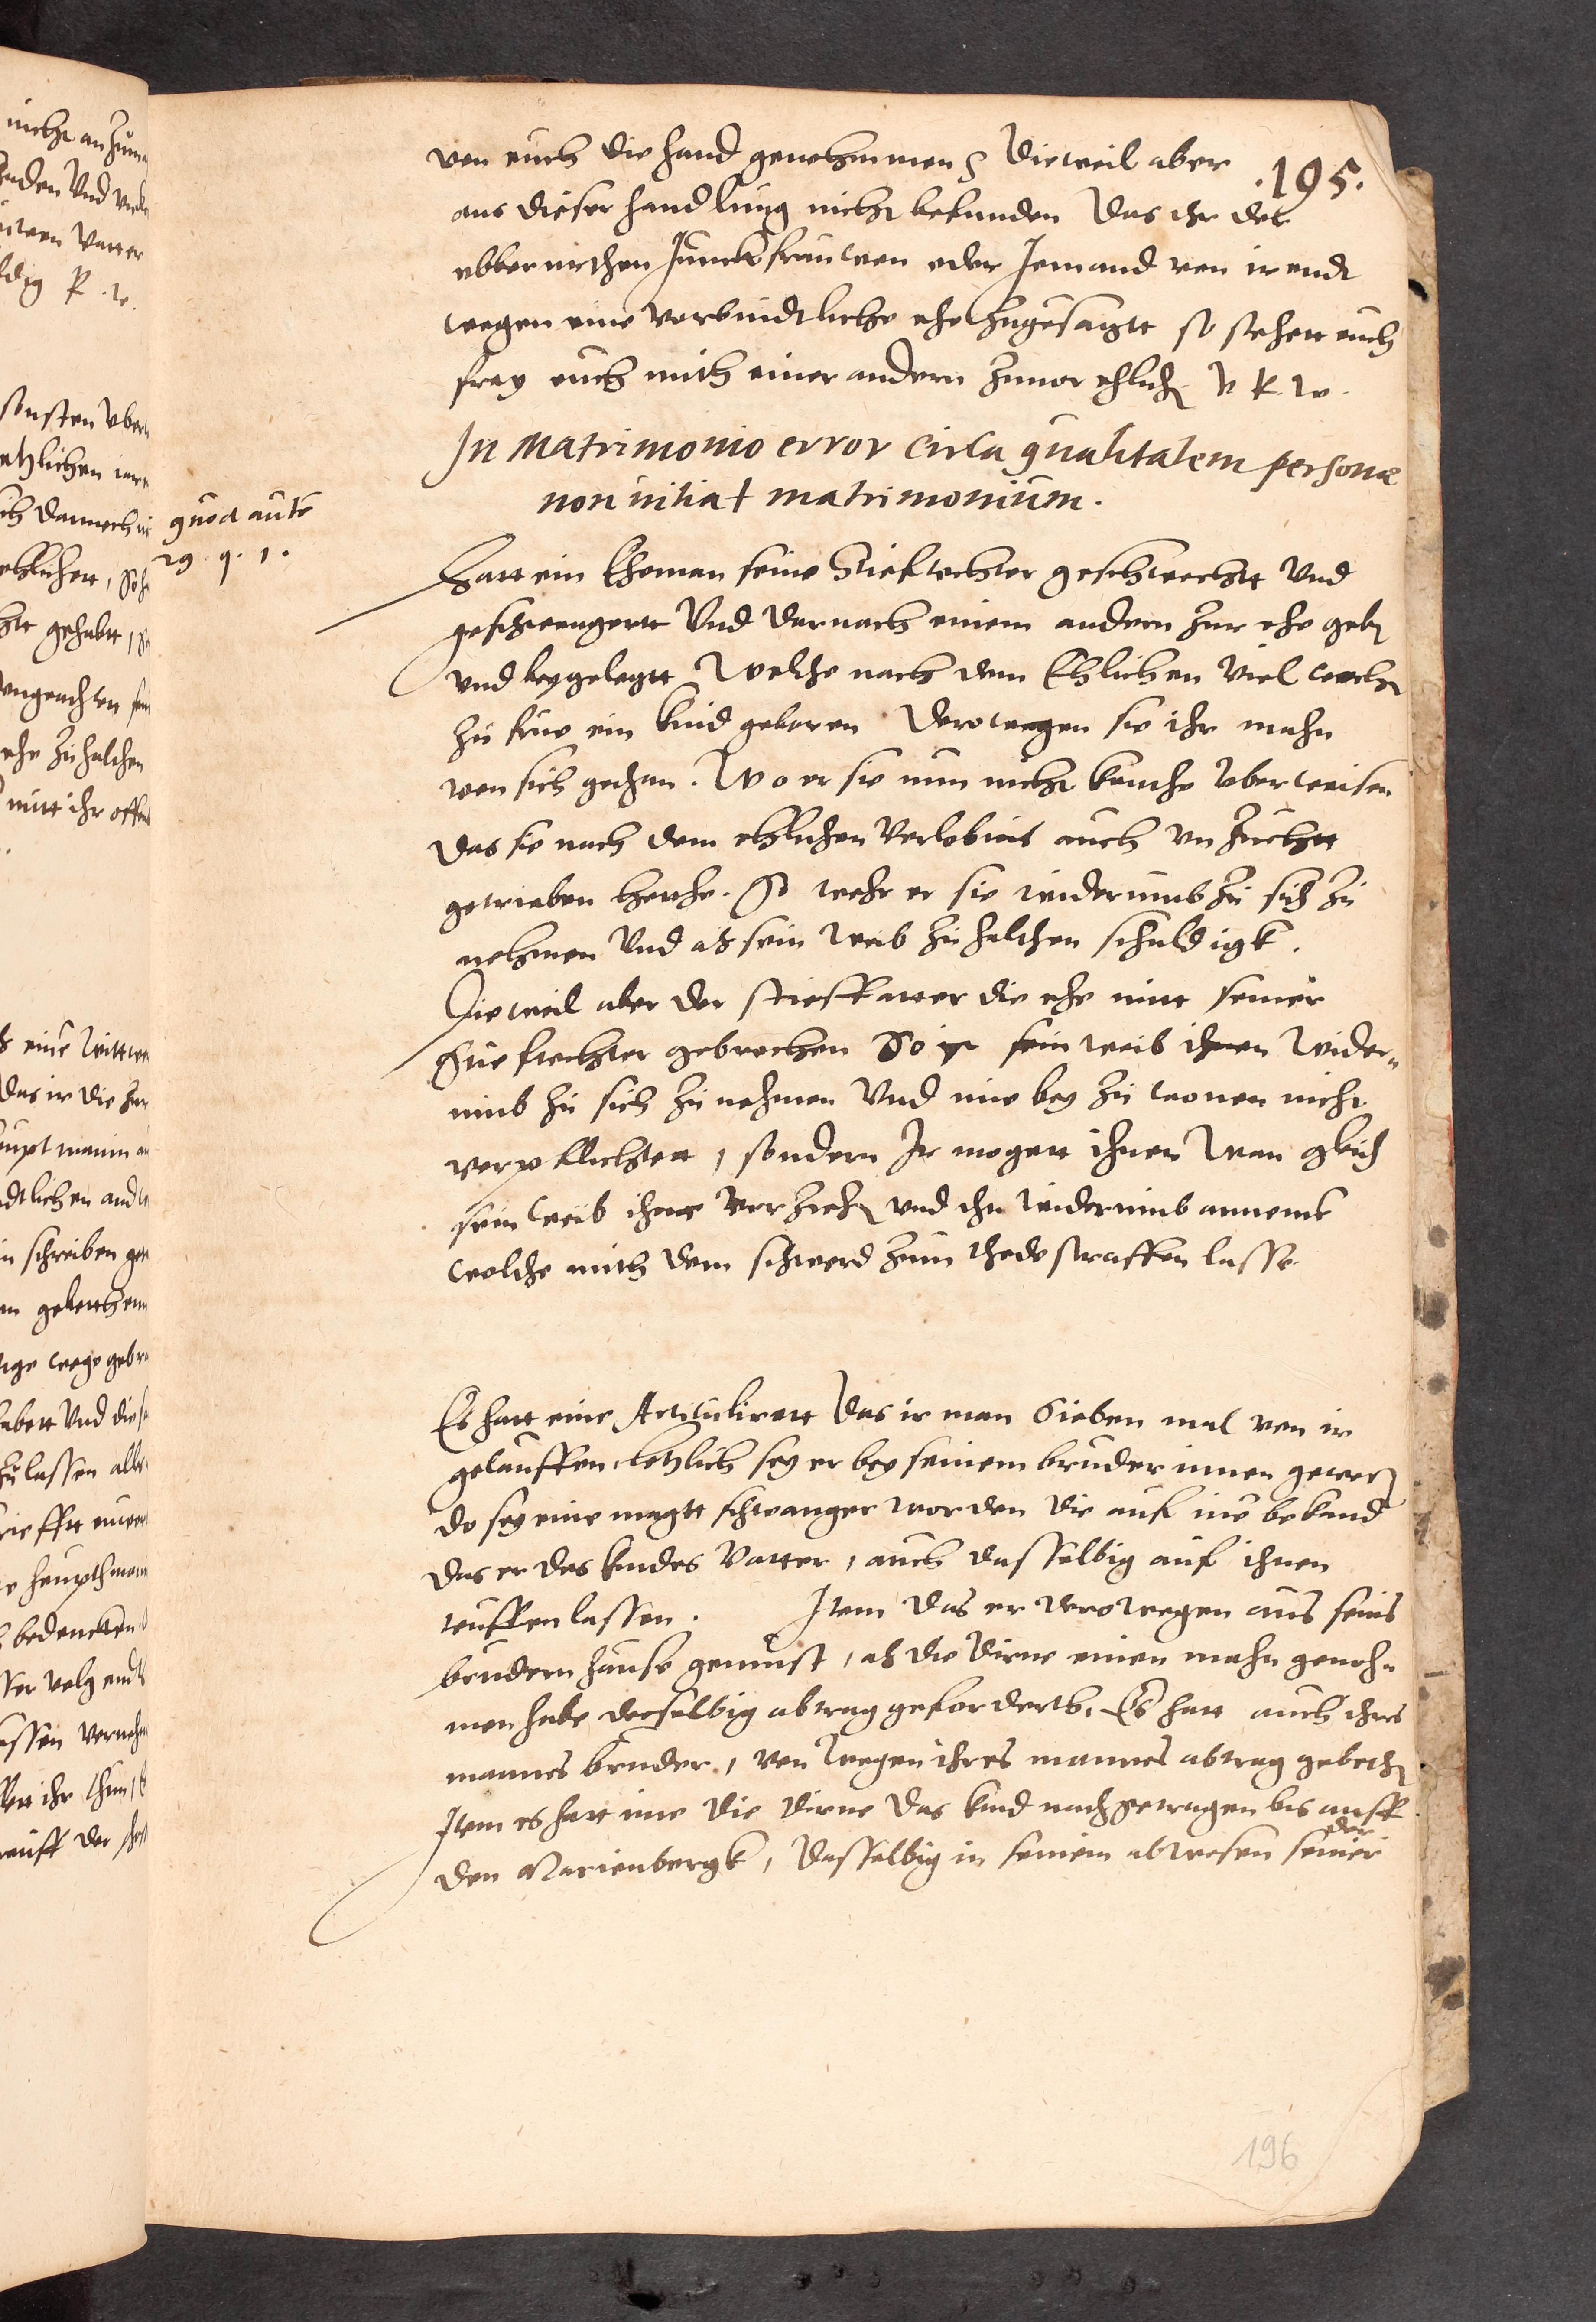 von euch die hand genohmmen Dieweil aber
.195.
aus dieser handlung nicht befunden das ihr der
obberurthen Junckfrauwen oder Jemand von irendt
wegen eine verbindtliche ehe zugesagtt so stehett euch
frey euch mith einer andern zuuor ehlich v R w
In Matrimonio error circa qualitatem personae
non vitiat matrimonium.
quod aute
29. q. 1.
Hatt ein Eheman seine Stieftochter geschwechtt Und
geschwengertt Und darnach einem andern zur ehe geb
und beygelegtt Welche nach dem Ehlichen viel woch
zu frue ein kind geboren Derowegen sie ihr mahn
von sich gethan. Wo er sie nun nicht konthe uberweisen
das sie nach dem ehlichen verlobnis auch unzuchtt
getrieben hethe. So wehr er sie widerumb zu sich zu
nehmen Und als sein weib zu halthen schuldigk.
Dieweil aber der stieffatter die ehe mitt seiner
Stieftochter gebrochen So ist sein weib ihnen wider¬
umb zu sich zu nehmen Und ime bey zu wonen nicht
verpflichtett, sondern Ir mogett ihnen wan gleich
sein weib ihme verzieh und ihn widerumb anneme
wolthe mith dem schwerd zum thode straffen lasse
Es hatt eine Articulirett das ir man Sieben mal von ir
gelauffen, letzlich sey er bey seinem bruder innen gewes
do sey eine magtt schwanger worden die auf ine bekand
das er des kindes Vatter, auch dasselbig auf ihnen
teuffen lassen. Item das er derowegen aus seins
brudern hause gemust, als die dirne einen mahn genoh¬
men habe derselbig abtrag gefordertt, Es hatt auch ihres
mannes bruder, von wegen ihres mannes abtrag geboth
Item es hatt ime die dirne das kind nachgetragen bis auff
den Marienbergk, dasselbig in seinem abwesen seiner
der
196